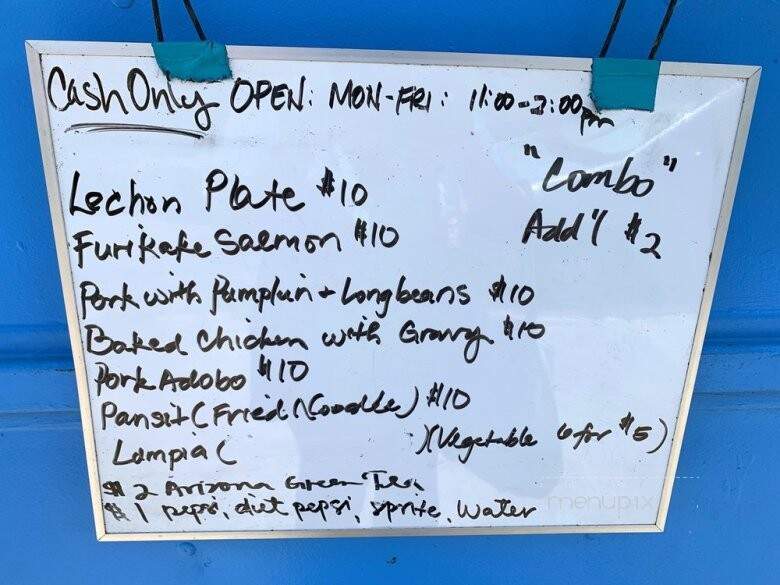 Cash Only OPEN: MON-FRI: 11:00-2:00pm
"Combo"
Add'l $2
Lechon Plate $10
Furikake Salmon $10
Pork with Pumpkin + Longbeans $10
Baked Chicken with Gravy $10
Pork Adobo $10
Pansit (Fried Noodle) $10
Lumpia (          )(Vegetable 6 for $5)
$2 Arizona Green Tea
$1 pepsi, diet pepsi, sprite, water
menupix